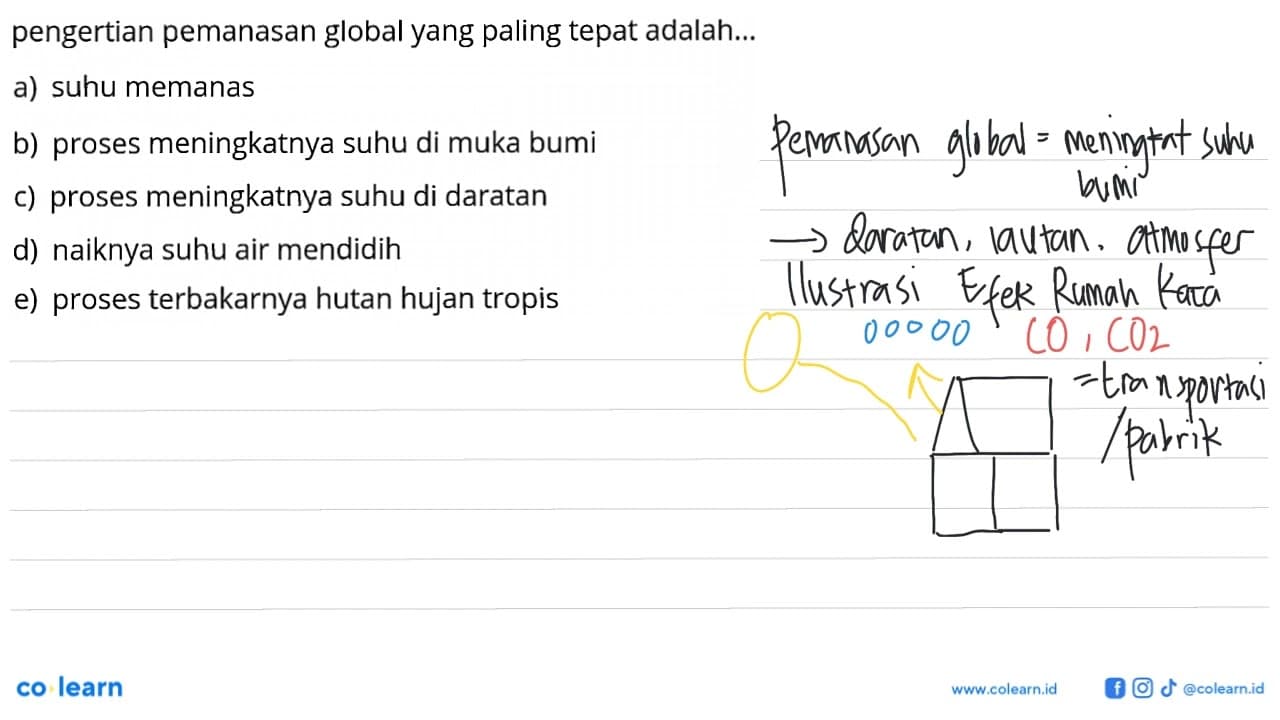 pengertian pemanasan global yang paling tepat adalah...
a) suhu memanas
b) proses meningkatnya suhu di muka bumi
c) proses meningkatnya suhu di daratan
d) naiknya suhu air mendidih
e) proses terbakarnya hutan hujan tropis
Pemanasan global = meningkat suhu
bumi
→ daratan, lautan, atmosfer
Ilustrasi Efek Rumah Kaca
00000 CO, CO2
=transportasi
/pabrik
co learn
www.colearn.id @colearn.id